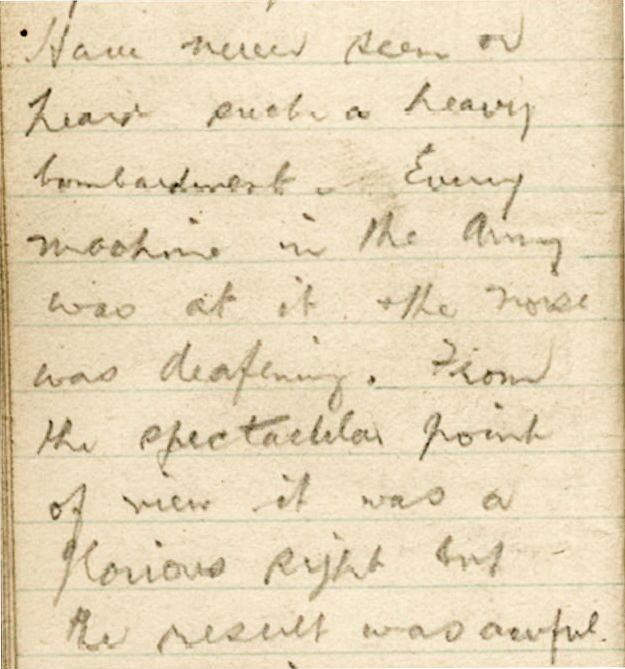 Have never seen or
heard such a heavy
bombardment. Every
machine in the Army
was at it & the noise
was deafening. From
the spectacular point
of view it was a
glorious sight but
the result was awful.